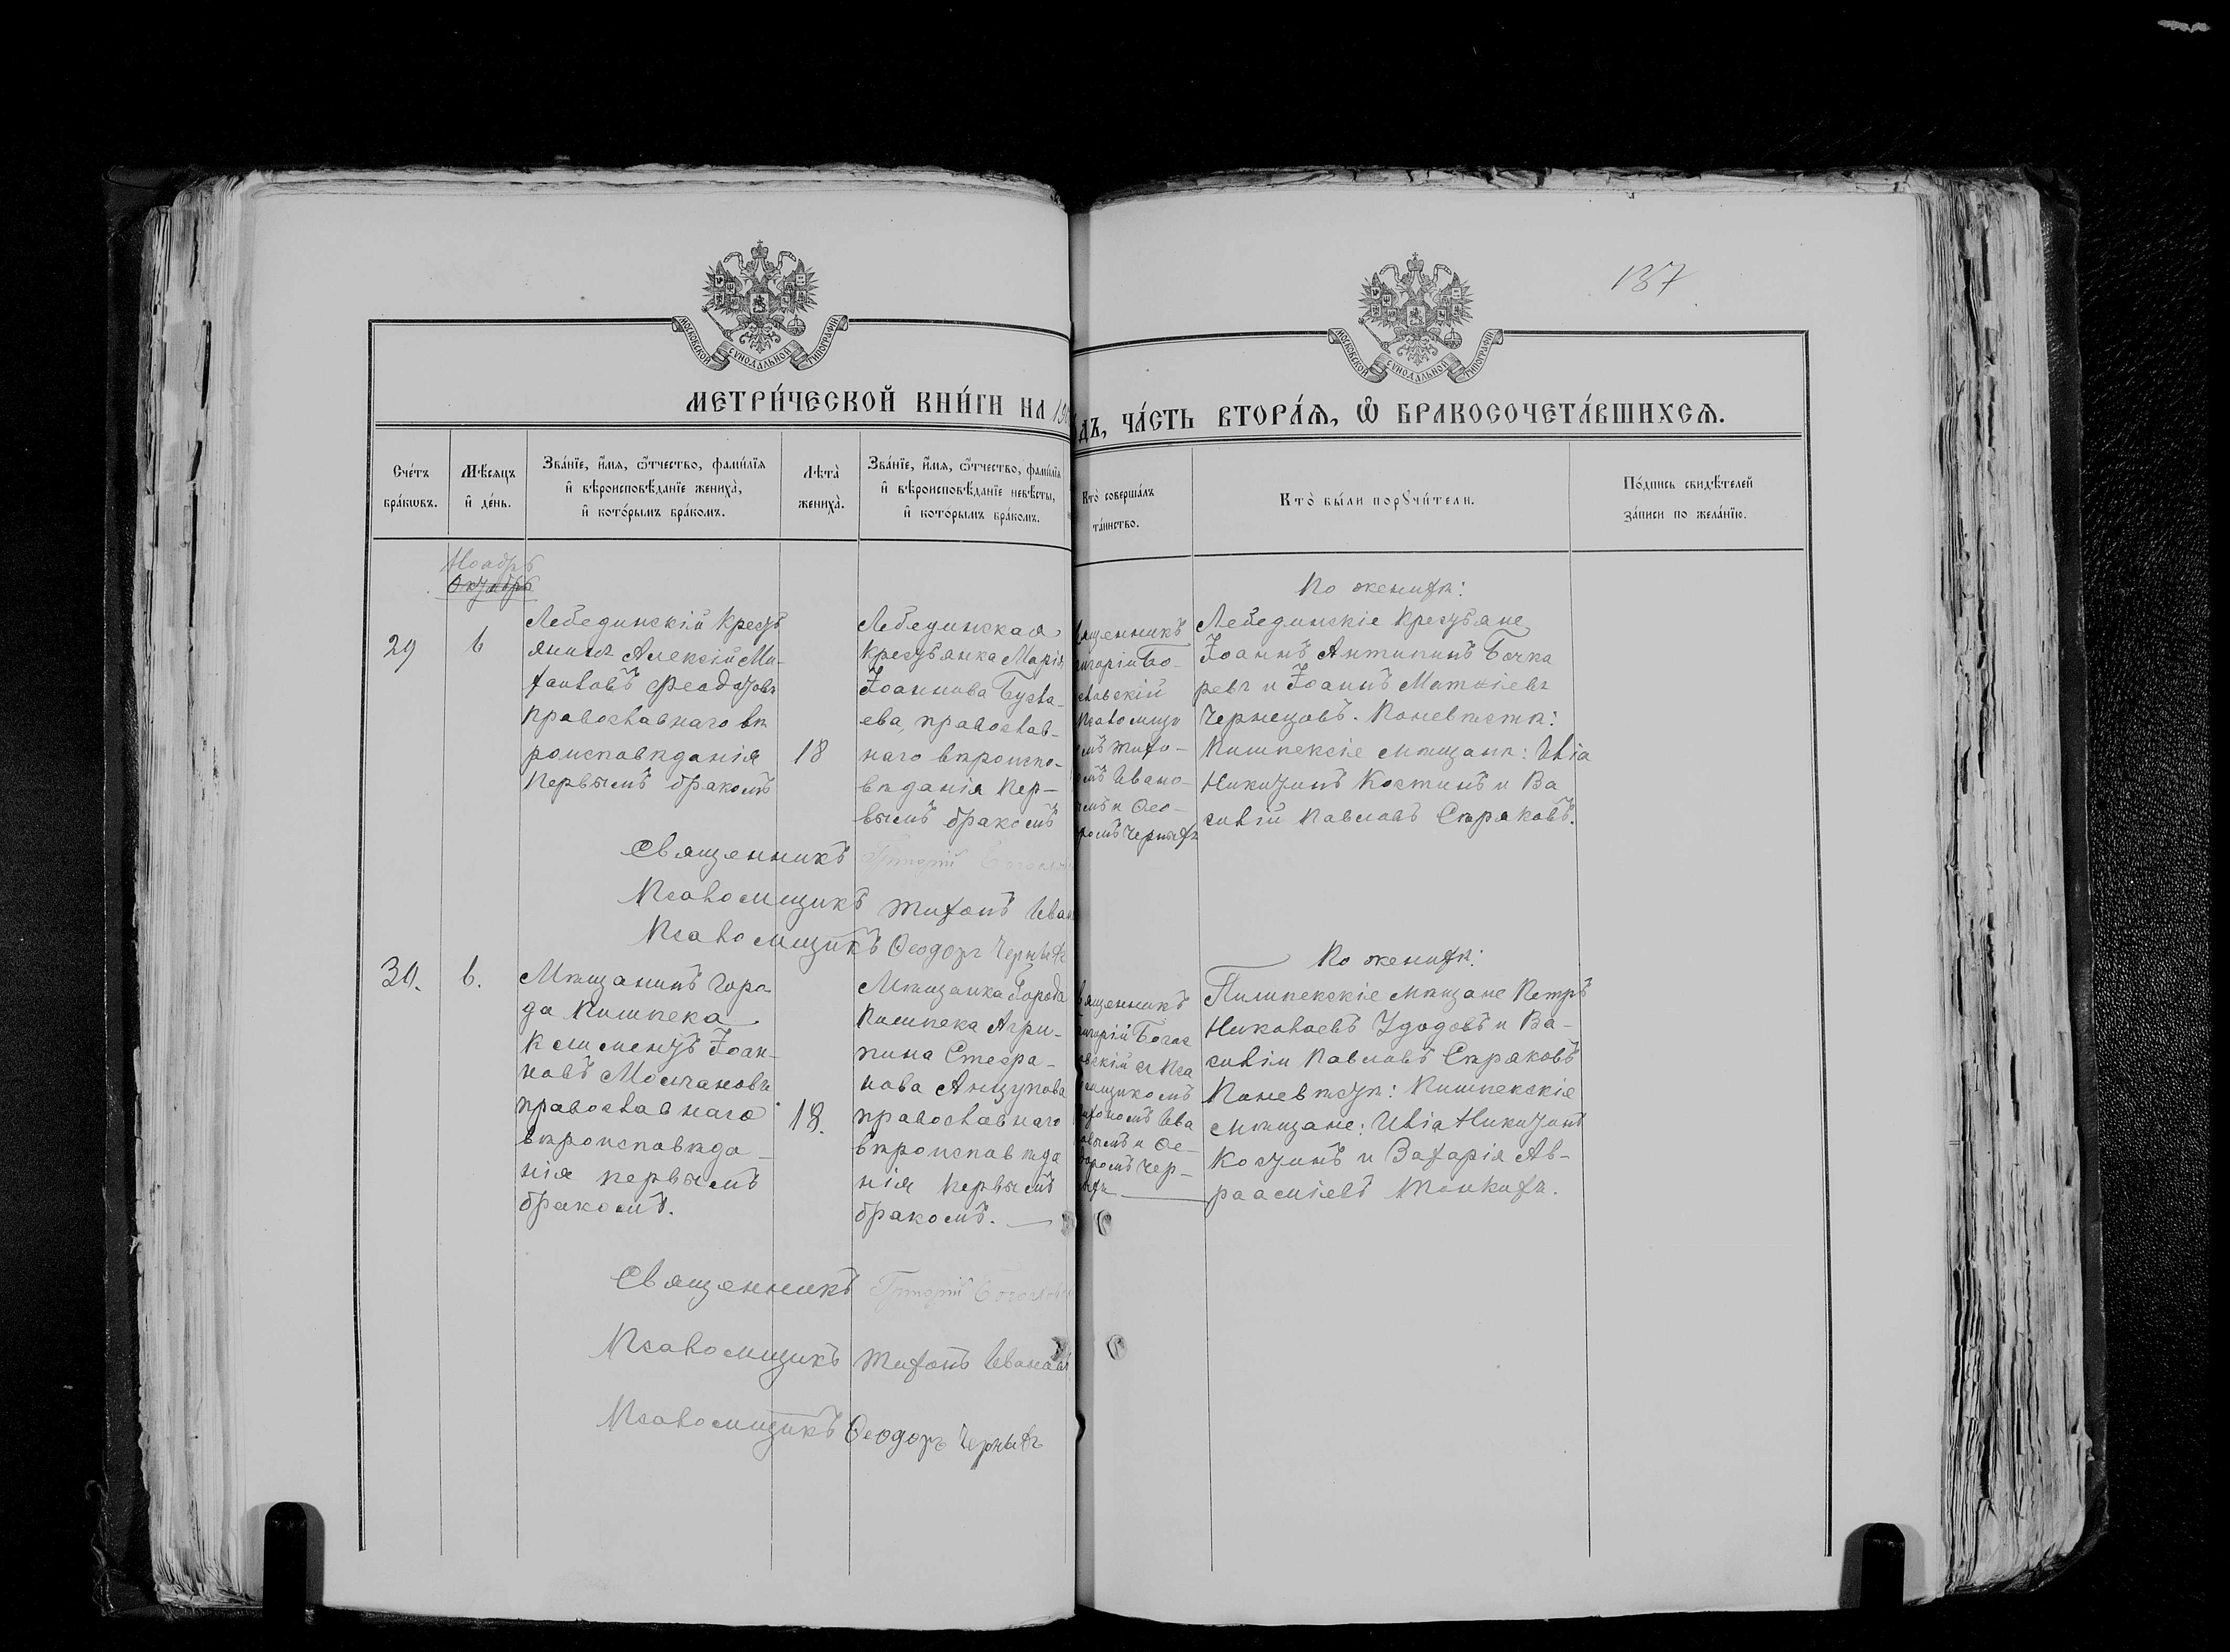 137
МОСКОВСКОЙ СУНОДАЛЬНОЙ ТИПОГРАФІИ
МОСКОВСКОЙ СУНОДАЛЬНОЙ ТИПОГРАФІИ
МЕТРИ́ЧЕСКОЙ КНИ́ГИ НА
ДЪ, ЧА́СТЬ ВТОРА́Ѧ, Ѡ҆ БРАКОСОЧЕТА́ВШИХСѦ.
Сче́тъ
бра́кѡвъ.
Мѣ́сяцъ
и҆ де́нь.
Зва́нїе, и҆́мя, ѻ҆́тчество, фами́лїя
и҆ вѣроисповѣ́данїе жениха̀,
и҆ кото́рымъ бра́комъ.
Лѣта̀
жениха̀.
Зва́нїе, и҆́мя, ѻ҆́тчество, фами́лїя
и҆ вѣроисповѣ́данїе невѣ́сты,
и҆ кото́рымъ бра́комъ.
Кто̀ соверша́лъ
та́инство.
Кто̀ бы́ли порꙋчи́тели.
По́дпись свидѣ́телей
за́писи по жела́нїю.
Ноябрь
Октябрь
29
6
Лебединскій кресть
янинъ Алексій Ми-
хаиловъ Феодотовъ
православнаго вѣ
роисповѣданія
первымъ бракомъ
18
Лебединская
крестьянка Марія
Іоаннова Бусла-
ева, православ-
наго вѣроиспо-
вѣданія пер-
вымъ бракомъ
ященникъ
игорій Бо-
словскій
псаломщи
омъ Тихо-
омъ Ивано-
ымъ и Ѳео-
ромъ Черныхъ
По женихѣ:
Лебединскіе крестьяне
Іоаннъ Антипинъ Бочка
ревъ и Іоаннъ Матѳіевъ
Чернецовъ. По невѣстѣ:
Пишпекскіе мѣщане: Илія
Никитинъ Костинъ и Ва
силій Павловъ Стряковъ.
Священникъ Григорій
Псаломщикъ Тихонъ Иван
Псаломщикъ Ѳеодоръ Черныхъ
30.
6.
Мѣщанинъ горо
да Пишпека
Климентъ Іоан-
новъ Молчановъ
православнаго
вѣроисповѣда-
нія первымъ
бракомъ.
18.
Мѣщанка города
Пишпека Агри-
пина Стефа-
нова Анцупова
православнаго
вѣроисповѣда
нія первымъ
бракомъ.
ященникъ
игорій Богос
овскій съ Пса
омщикомъ
ихономъ Ива
овымъ и Ѳе-
доромъ Чер-
ныхъ
По женихѣ:
Пишпекскіе мѣщане Петръ
Николаевъ Удодовъ и Ва-
силій Павловъ Стряковъ
По невѣстѣ: Пишпекскіе
мѣщане: Илія Никитинъ
Костинъ и Захарія Ав-
раамiевъ Тонкихъ.
Священникъ Григорій Богословск
Псаломщикъ Тихонъ Ивановъ
Псаломщикъ Ѳеодоръ Черныхъ